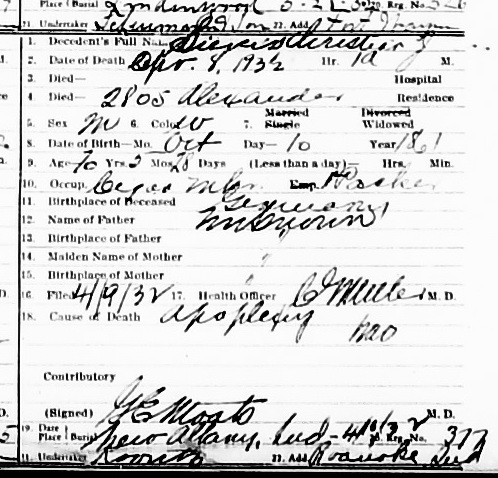 Place (Burial Lyndenwood 3-2
21. Undertaker & Son 22. Add. Fort Wayne
1. Decedent's Full Name Christian
2. Date of Death Apr. 8, 1932 Hr. 1a M.
3. Died— Hospital
4. Died— 2805 Alexander Residence
5. Sex M 6. Color W 7. Married Single Divorced Widowed
8. Date of Birth—Mo. Oct Day— 10 Year 1861
9. Age 70 Yrs. 5 Mos. 28 Days (Less than a day)— Hrs. Min.
10. Occup. Cigar Mfgr. Emp.
11. Birthplace of Deceased Germany
12. Name of Father Unknown
13. Birthplace of Father
14. Maiden Name of Mother "
15. Birthplace of Mother "
16. Filed 4/9/32 17. Health Officer M. D.
18. Cause of Death Apoplexy
Contributory
(Signed) M. D.
19. Date Place (Burial New Albany, Ind. 20. Reg. No. 377
21. Undertaker 22. Add. Roanoke Ind